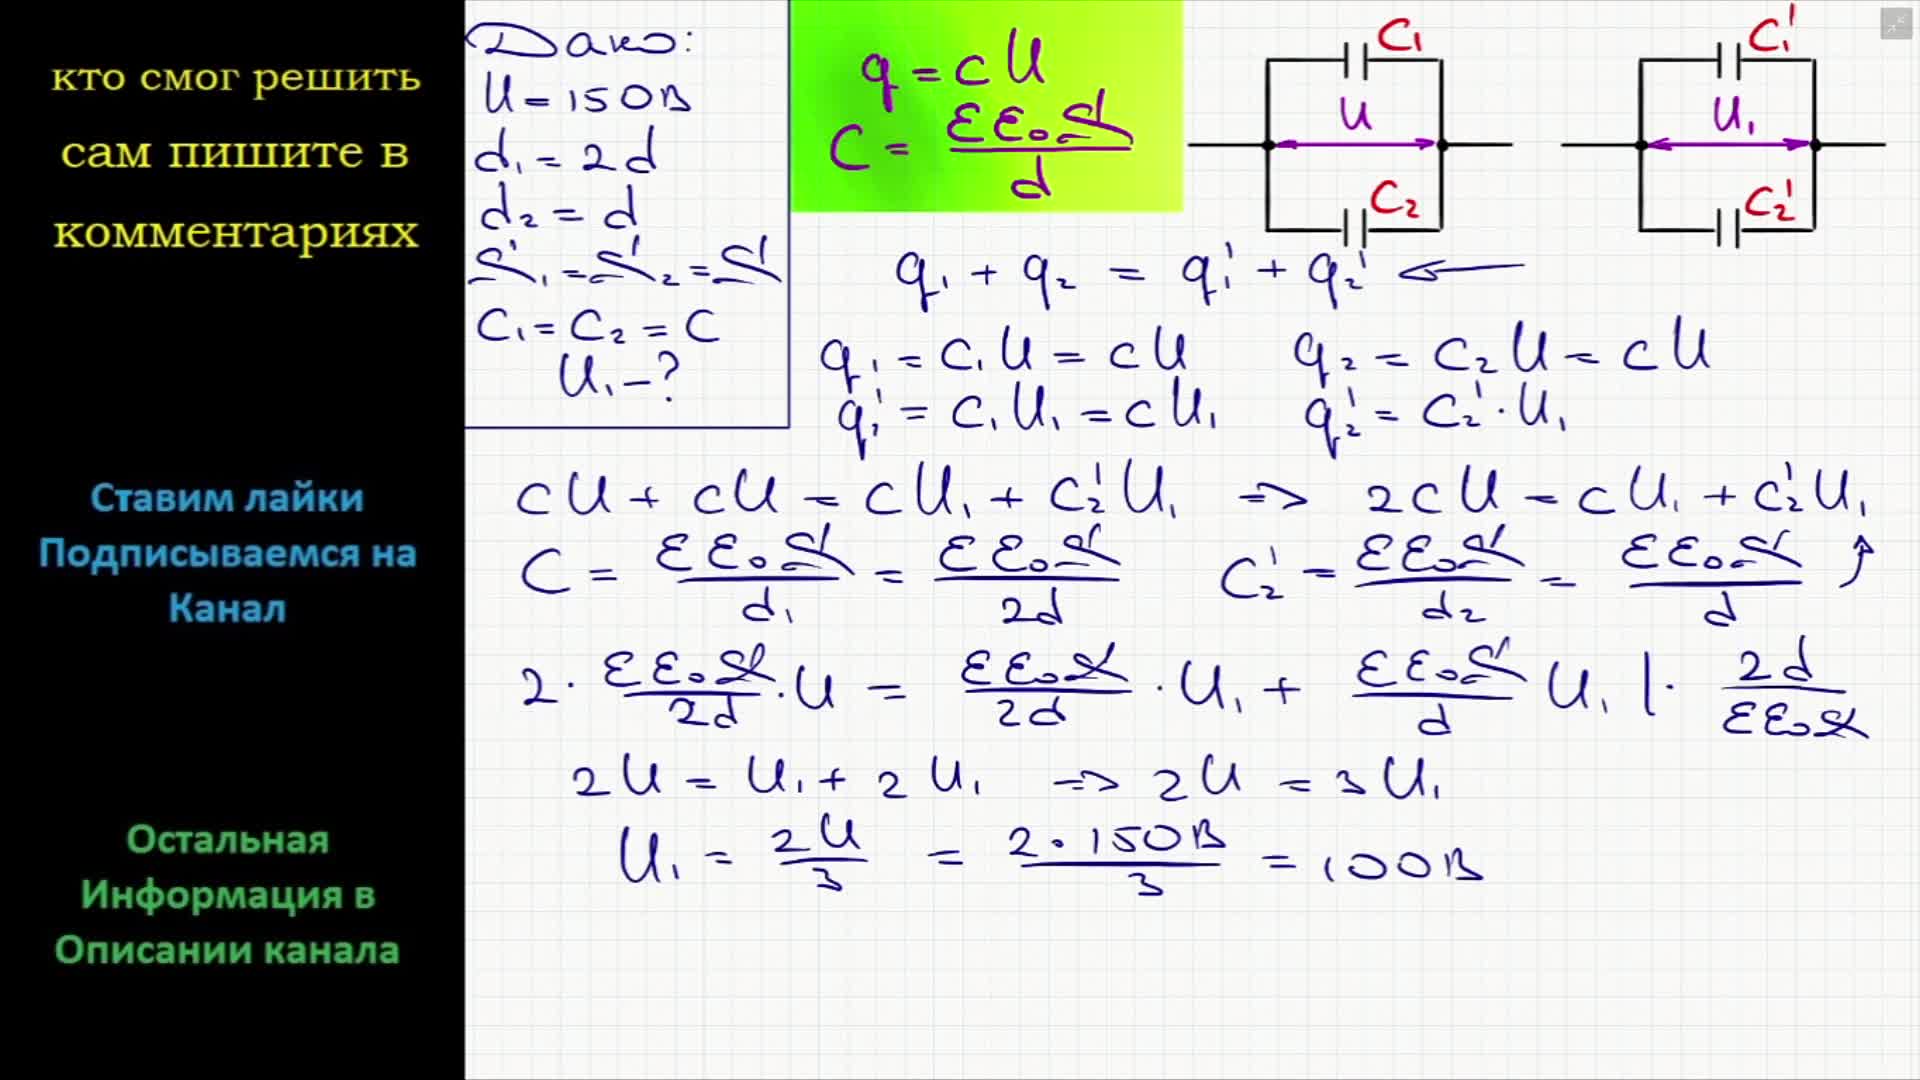 кто смог решить
сам пишите в
комментариях
Ставим лайки
Подписываемся на
Канал
Остальная
Информация в
Описании канала
Дано:
U = 150В
d₁ = 2d
d₂ = d
S₁ = S₂ = S
C₁ = C₂ = C
U₁ – ?
q = cU
C = εε₀S/d
C₁
U
C₂
C₁'
U₁
C₂'
q₁ + q₂ = q₁' + q₂' ←
q₁ = C₁U = CU q₂ = C₂U = CU
q₁' = C₁U₁ = CU₁ q₂' = C₂'·U₁
CU + CU = CU₁ + C₂'U₁ => 2CU = CU₁ + C₂'U₁
C = εε₀S/d₁ = εε₀S/2d C₂' = εε₀S/d₂ = εε₀S/d
2·εε₀S/2d·U = εε₀S/2d·U₁ + εε₀S/d U₁ |· 2d/εε₀S
2U = U₁ + 2U₁ => 2U = 3U₁
U₁ = 2U/3 = 2·150В/3 = 100В